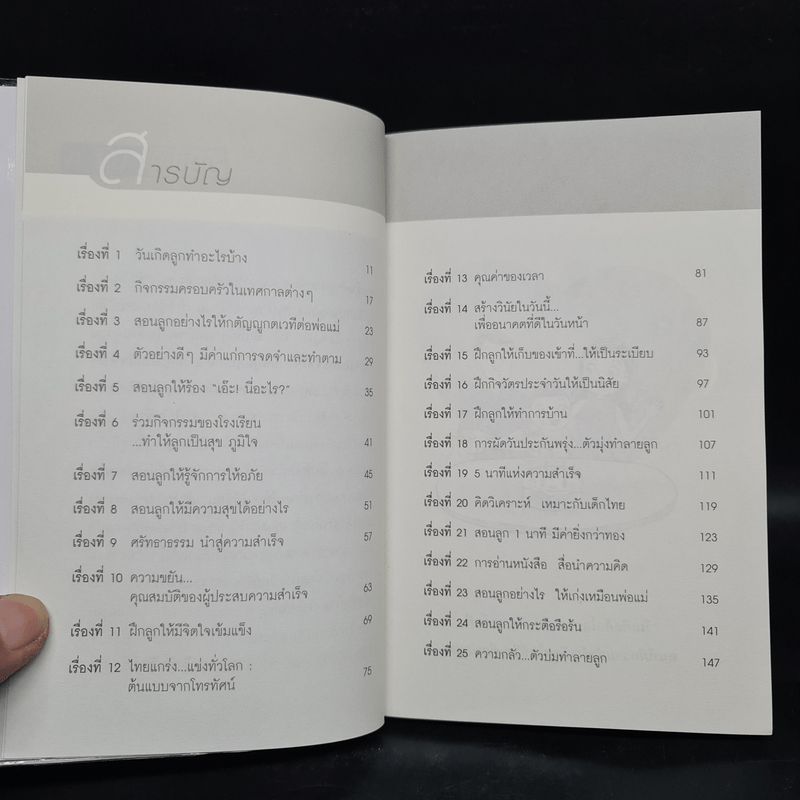 สารบัญ
เรื่องที่ 1 วันเกิดลูกทำอะไรบ้าง 11
เรื่องที่ 2 กิจกรรมครอบครัวในเทศกาลต่างๆ 17
เรื่องที่ 3 สอนลูกอย่างไรให้กตัญญูกตเวทีต่อพ่อแม่ 23
เรื่องที่ 4 ตัวอย่างดีๆ มีค่าแก่การจดจำและทำตาม 29
เรื่องที่ 5 สอนลูกให้ร้อง "เอ๊ะ! นี่อะไร?" 35
เรื่องที่ 6 ร่วมกิจกรรมของโรงเรียน
...ทำให้ลูกเป็นสุข ภูมิใจ 41
เรื่องที่ 7 สอนลูกให้รู้จักการให้อภัย 45
เรื่องที่ 8 สอนลูกให้มีความสุขได้อย่างไร 51
เรื่องที่ 9 ศรัทธาธรรม นำสู่ความสำเร็จ 57
เรื่องที่ 10 ความขยัน...
คุณสมบัติของผู้ประสบความสำเร็จ 63
เรื่องที่ 11 ฝึกลูกให้มีจิตใจเข้มแข็ง 69
เรื่องที่ 12 ไทยแกร่ง...แข่งทั่วโลก :
ต้นแบบจากโทรทัศน์ 75
เรื่องที่ 13 คุณค่าของเวลา 81
เรื่องที่ 14 สร้างวินัยในวันนี้...
เพื่ออนาคตที่ดีในวันหน้า 87
เรื่องที่ 15 ฝึกลูกให้เก็บของเข้าที่...ให้เป็นระเบียบ 93
เรื่องที่ 16 ฝึกกิจวัตรประจำวันให้เป็นนิสัย 97
เรื่องที่ 17 ฝึกลูกให้ทำการบ้าน 101
เรื่องที่ 18 การผัดวันประกันพรุ่ง...ตัวมุ่งทำลายลูก 107
เรื่องที่ 19 5 นาทีแห่งความสำเร็จ 111
เรื่องที่ 20 คิดวิเคราะห์ เหมาะกับเด็กไทย 119
เรื่องที่ 21 สอนลูก 1 นาที มีค่ายิ่งกว่าทอง 123
เรื่องที่ 22 การอ่านหนังสือ สื่อนำความคิด 129
เรื่องที่ 23 สอนลูกอย่างไร ให้เก่งเหมือนพ่อแม่ 135
เรื่องที่ 24 สอนลูกให้กระตือรือร้น 141
เรื่องที่ 25 ความกลัว...ตัวบ่มทำลายลูก 147